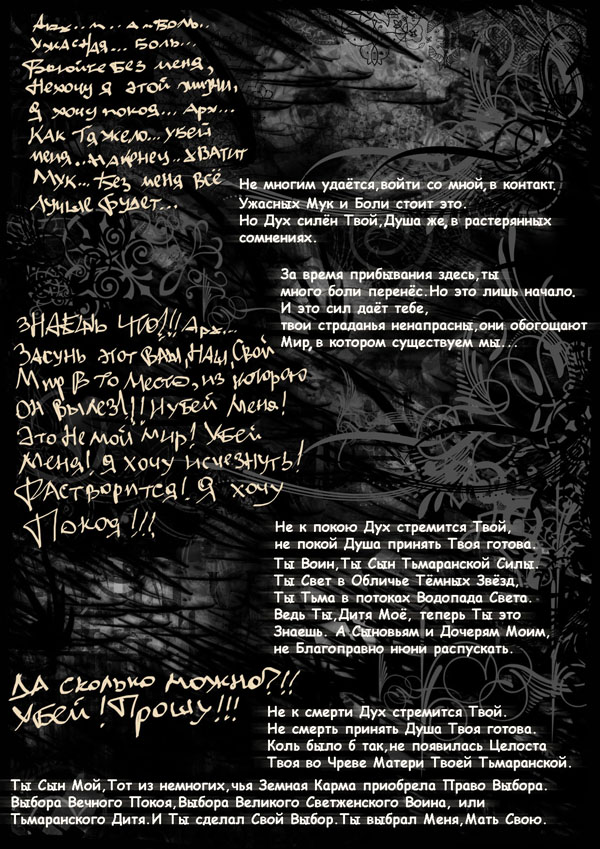 Арх...м...а-Боль..
Ужасная... Боль...
Воюйте без меня,
Нехочу я этой жизни,
Я хочу покоя... Арх...
Как тяжело...убей
меня...наконец..хватит
Мук...Без меня всё
лучше будет...
Не многим удаётся,войти со мной,в контакт.
Ужасных Мук и Боли стоит это.
Но Дух силён Твой,Душа же,в растерянных
сомнениях.
За время прибывания здесь,ты
много боли перенёс.Но это лишь начало.
И это сил даёт тебе,
твои страданья ненапрасны,они обогощают
Мир,в котором существуем мы...
ЗНАЕШЬ ЧТО!!! Арх...
Засунь этот ваш,наш,свой
Мир в то место,из которого
он вылез!!! И убей меня!
Это не мой мир! Убей
меня! Я хочу исчезнуть!
Растворится! Я хочу
Покоя!!!
Не к покою Дух стремится Твой,
не покой Душа принять Твоя готова.
Ты Воин,Ты Сын Тьмаранской Силы.
Ты Свет в Обличье Тёмных Звёзд,
Ты Тьма в потоках Водопада Света.
Ведь Ты,Дитя Моё, теперь Ты это
Знаешь. А Сыновьям и Дочерям Моим,
не Благоправно нюни распускать.
Да сколько можно?!!
Убей! Прошу!!!
Не к смерти Дух стремится Твой.
Не смерть принять Душа Твоя готова.
Коль было б так,не появилась Целоста
Твоя во Чреве Матери Твоей Тьмаранской.
Ты Сын Мой,Тот из немногих,чья Земная Карма приобрела Право Выбора.
Выбора Вечного Покоя,Выбора Великого Светженского Воина, или
Тьмаранского Дитя.И Ты сделал Свой Выбор.Ты выбрал Меня,Мать Свою.